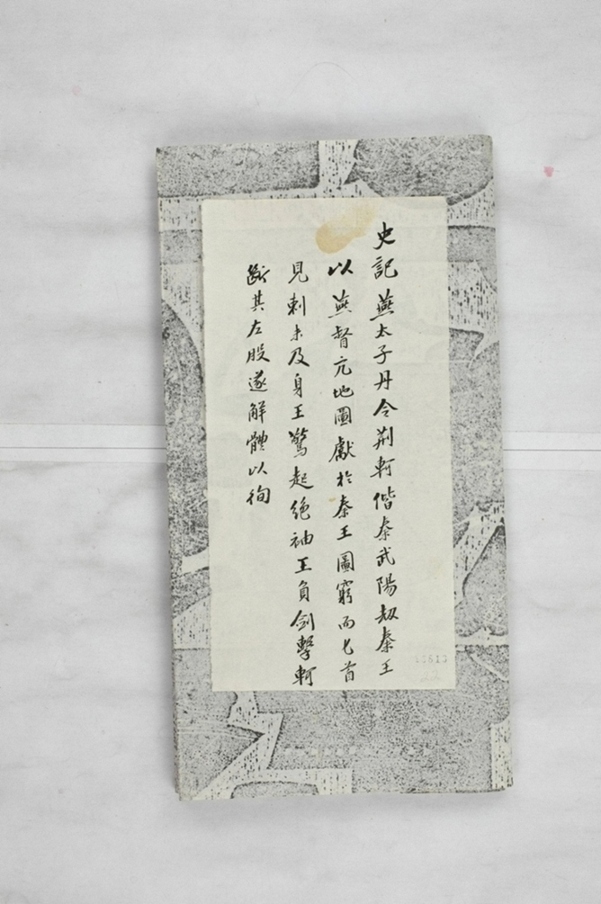 史記燕太子丹令荆軻偕秦武陽劫秦王
以燕督亢地圖獻於秦王圖窮而匕首
見刺未及身王驚起絶袖王負劍擊軻
斷其左股遂解體以徇